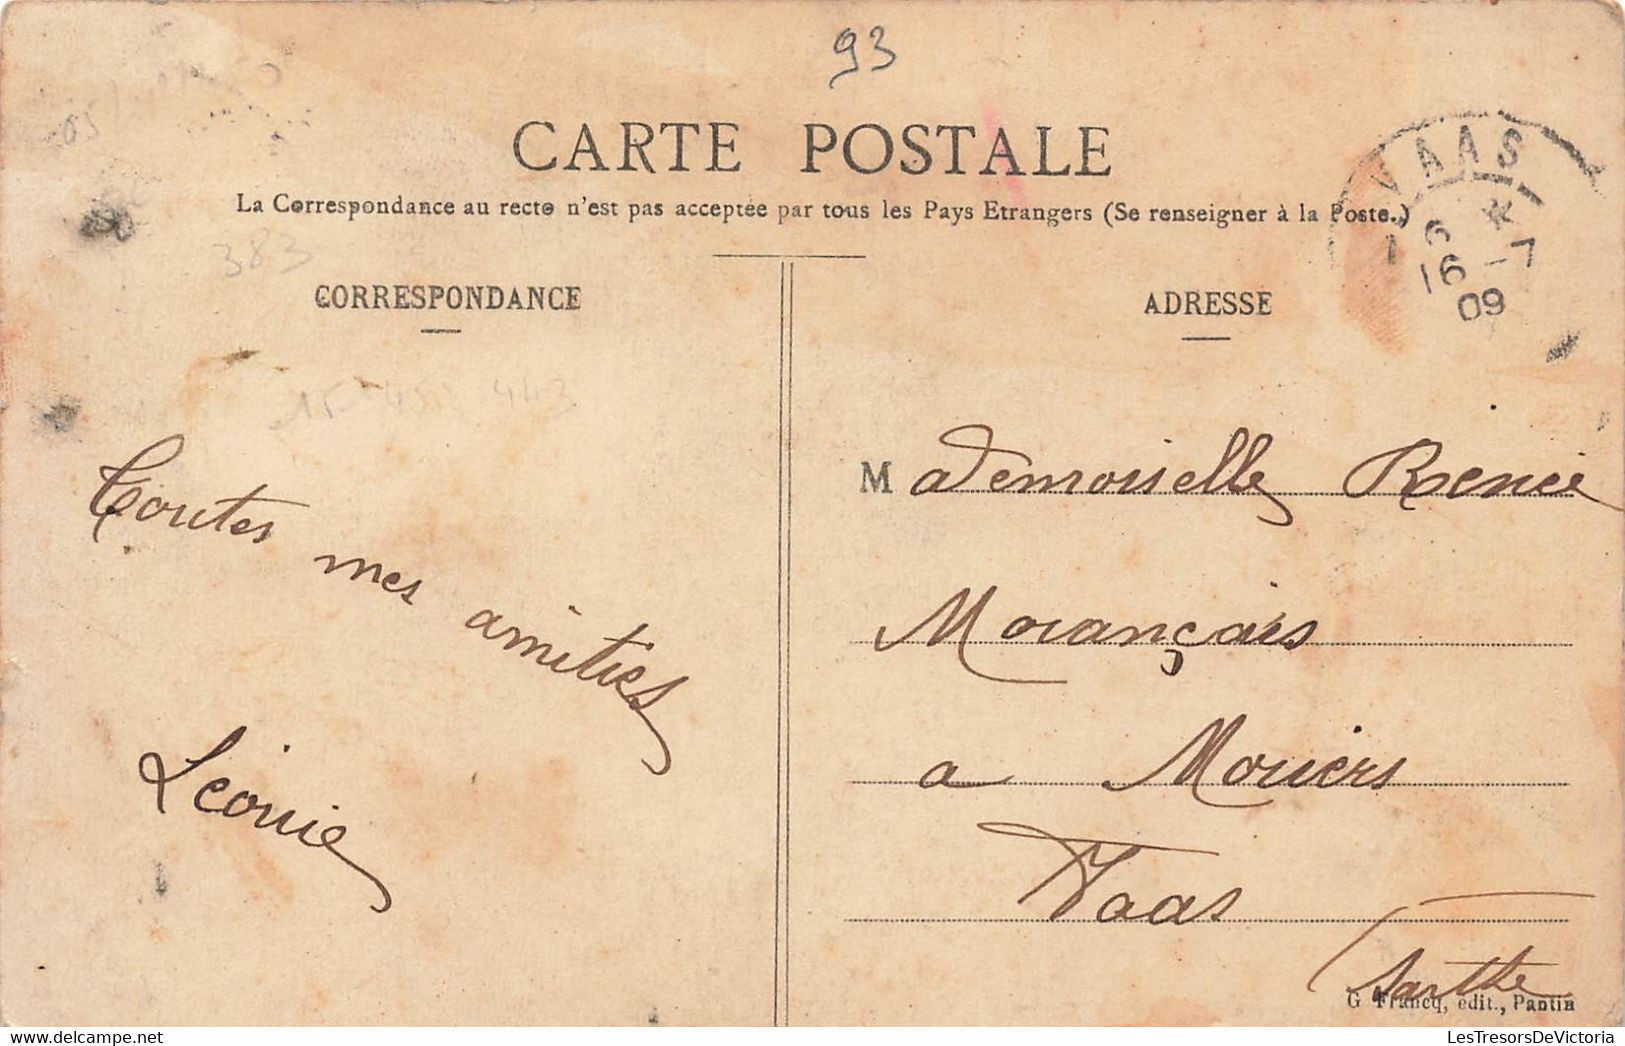 93
CARTE POSTALE
La Correspondance au recto n'est pas acceptée par tous les Pays Etrangers (Se renseigner à la Poste.)
VAAS
16 - 7
09
383
CORRESPONDANCE
ADRESSE
443
Toutes
mes
amitiés
Léonie
Mademoiselle Renée
Morançais
a Moriers
Vaas
Sarthe
G Francq, édit., Pantin
LesTresorsDeVictoria